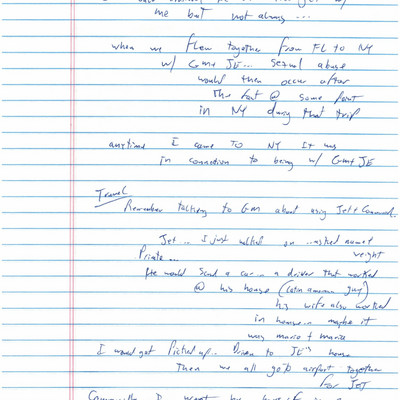 me but not always ...
when we flew together from FL to NY
w/ GM + JE ... sexual abuse
would then occur after
the fact @ some point
in NY during that trip
anytime I came TO NY It was
in connection to being w/ GM + JE
Travel
Remember talking to GM about using Jet & Commercial..
Jet .. I just walked on .. asked name &
weight
Private ...
He would send a car .. a driver that worked
@ his house (latin american guy)
his wife also worked
in house .. maybe it
was mario + maria
I would get Picked up .. Driven to JE's home
Then we all go to airport together
for Jet
Commercially I went by